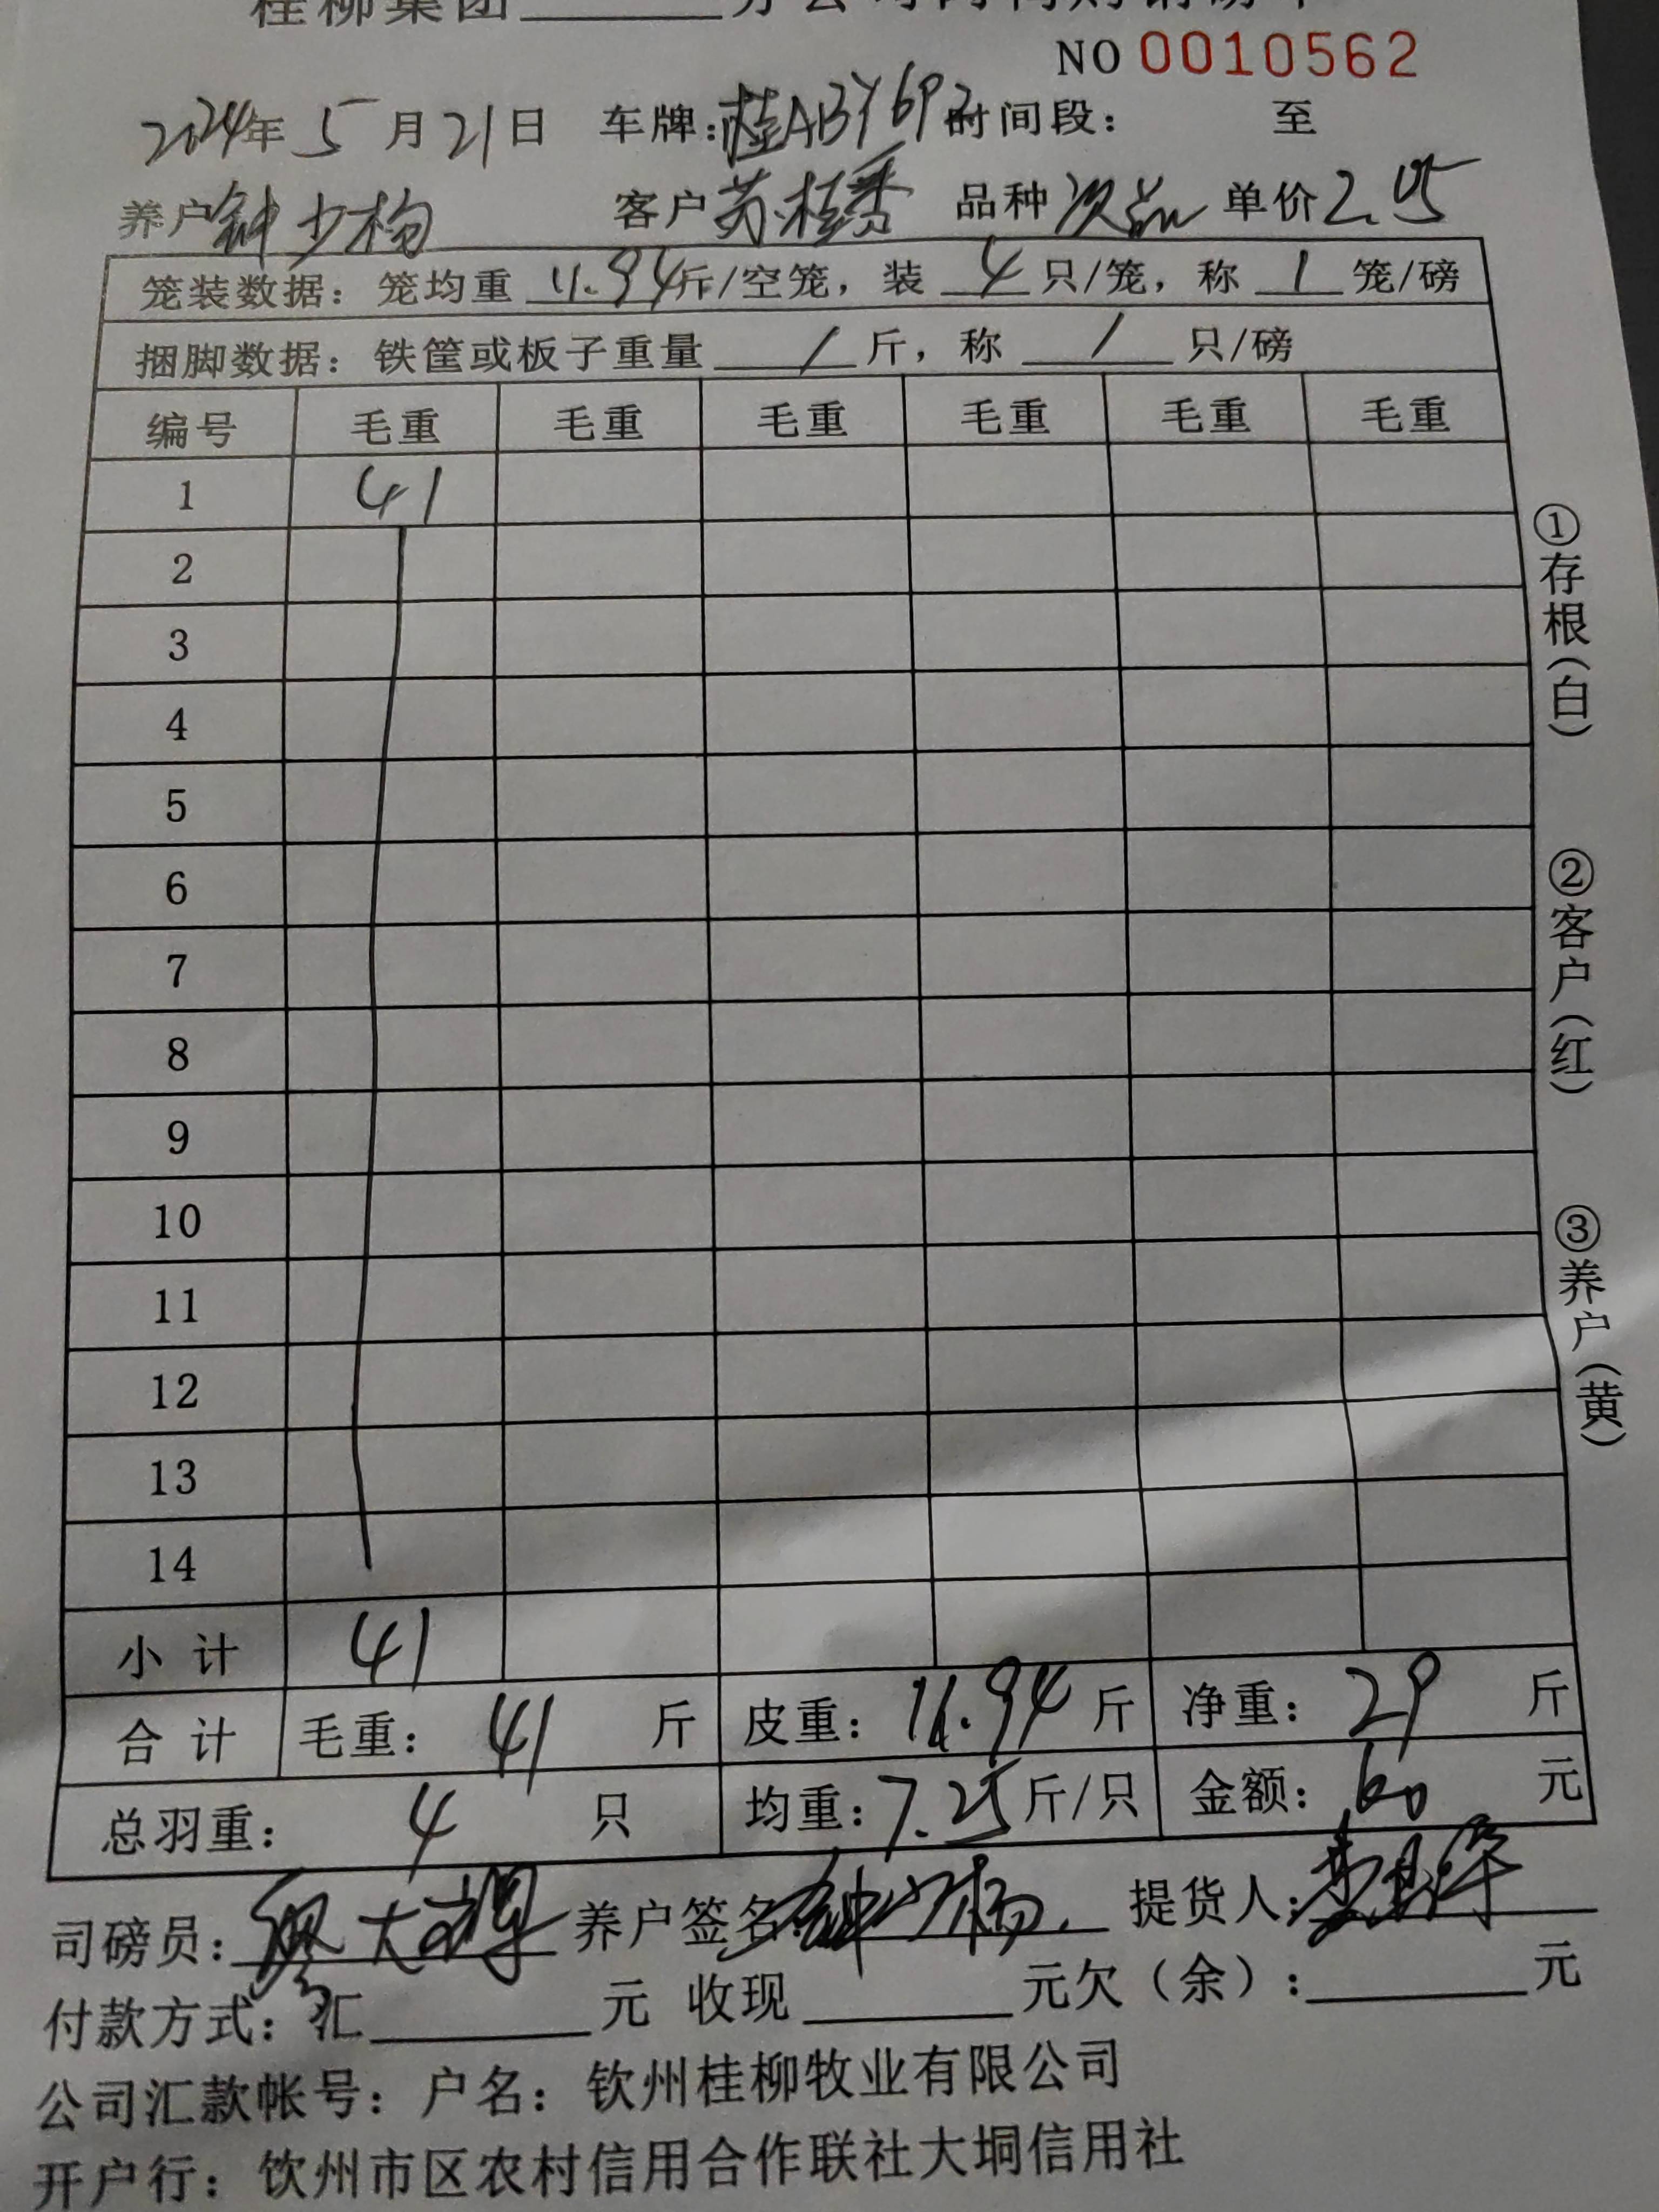 桂柳集团
NO 0010562
2024年 5 月 21 日 车牌:桂ABY697 时间段: 至
养户 钟少杨 客户 苏桂秀 品种 次品 单价 2.05
笼装数据: 笼均重 11.94斤/空笼, 装 4 只/笼, 称 1 笼/磅
捆脚数据: 铁筐或板子重量 / 斤, 称 / 只/磅
编号 毛重 毛重 毛重 毛重 毛重 毛重
1 41
2
3
4
5
6
7
8
9
10
11
12
13
14
小计 41
合计 毛重: 41 斤 皮重: 11.94 斤 净重: 29 斤
总羽重: 4 只 均重: 7.25 斤/只 金额: 60 元
司磅员: 养户签名: 钟少杨 提货人:
付款方式: 汇 元 收现 元欠(余): 元
公司汇款帐号: 户名: 钦州桂柳牧业有限公司
开户行: 钦州市区农村信用合作联社大垌信用社
①存根(白)
②客户(红)
③养户(黄)